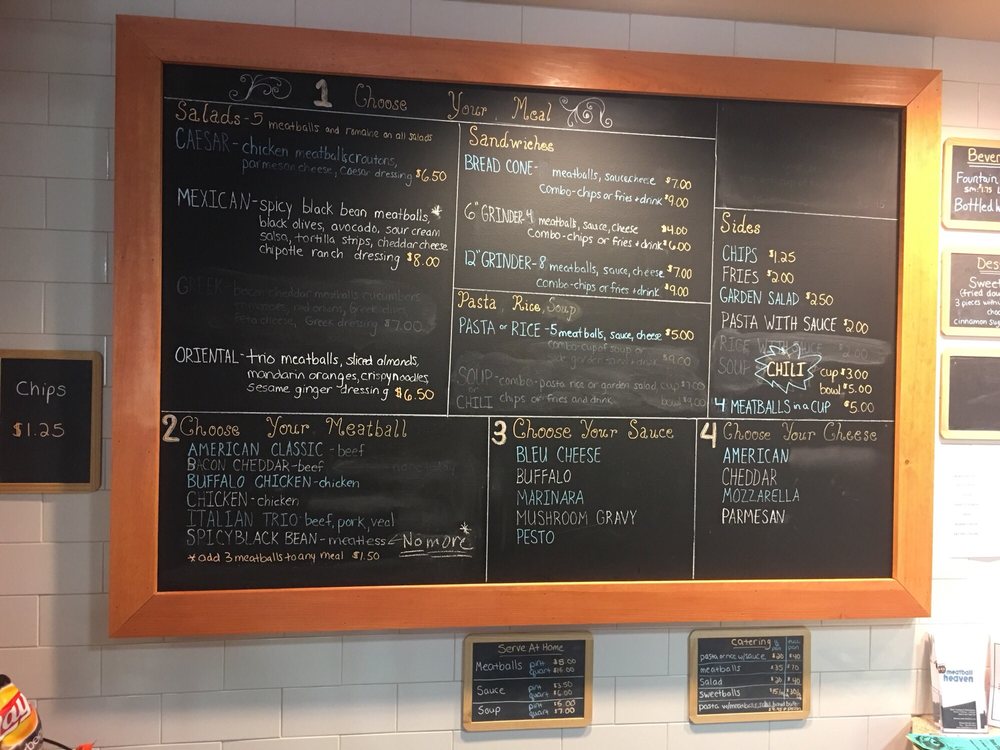 1 Choose Your Meal
Salads-5 meatballs and romaine on all salads
CAESAR-chicken meatballs, croutons,
parmesan cheese, caesar dressing $6.50
MEXICAN-spicy black bean meatballs,*
black olives, avocado, sour cream
salsa, tortilla strips, cheddar cheese
chipotle ranch dressing $8.00
GREEK-bacon cheddar meatballs cucumbers
tomatoes, red onion, Greek olives
feta cheese Greek dressing $7.00
ORIENTAL-trio meatballs, sliced almonds,
mandarin oranges, crispy noodles,
sesame ginger dressing $6.50
Sandwiches
BREAD CONE- meatballs, sauce, cheese $7.00
combo-chips or fries + drink $9.00
6" GRINDER-4 meatballs, sauce, cheese $4.00
combo-chips or fries + drink $6.00
12" GRINDER-8 meatballs, sauce, cheese $7.00
combo-chips or fries + drink $9.00
Pasta, Rice, Soup
PASTA or RICE-5 meatballs, sauce, cheese $5.00
combo cup of soup or
side garden salad + drink $9.00
SOUP-combo-pasta rice or garden salad, cup $7.00
or
CHILI chips or fries and drink bowl $9.00
Sides
CHIPS $1.25
FRIES $2.00
GARDEN SALAD $2.50
PASTA WITH SAUCE $2.00
RICE WITH SAUCE $2.00
SOUP CHILI cup $3.00
bowl $5.00
4 MEATBALLS in a CUP $5.00
2 Choose Your Meatball
AMERICAN CLASSIC -beef
BACON CHEDDAR-beef
BUFFALO CHICKEN-chicken
CHICKEN-chicken
ITALIAN TRIO-beef, pork, veal
SPICY BLACK BEAN-meatless No more *
*add 3 meatballs to any meal $1.50
3 Choose Your Sauce
BLEU CHEESE
BUFFALO
MARINARA
MUSHROOM GRAVY
PESTO
4 Choose Your Cheese
AMERICAN
CHEDDAR
MOZZARELLA
PARMESAN
Chips
$1.25
Bever
Fountain
Bottled
Des
Sweet
(fried dou
3 pieces with
cinnamon sug
Serve At Home
Meatballs pint $8.00
quart $15.00
Sauce pint $3.50
quart $6.00
Soup pint $5.00
quart $7.00
Catering ½ pan full pan
pasta or rice w/sauce $20 $40
meatballs $35 $70
Salad $20 $40
Sweetballs
meatball
heaven